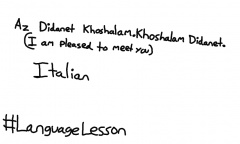 Az Didanet Khoshalam.Khoshalam Didanet.
(I am pleased to meet you)
Italian
#LanguageLesson